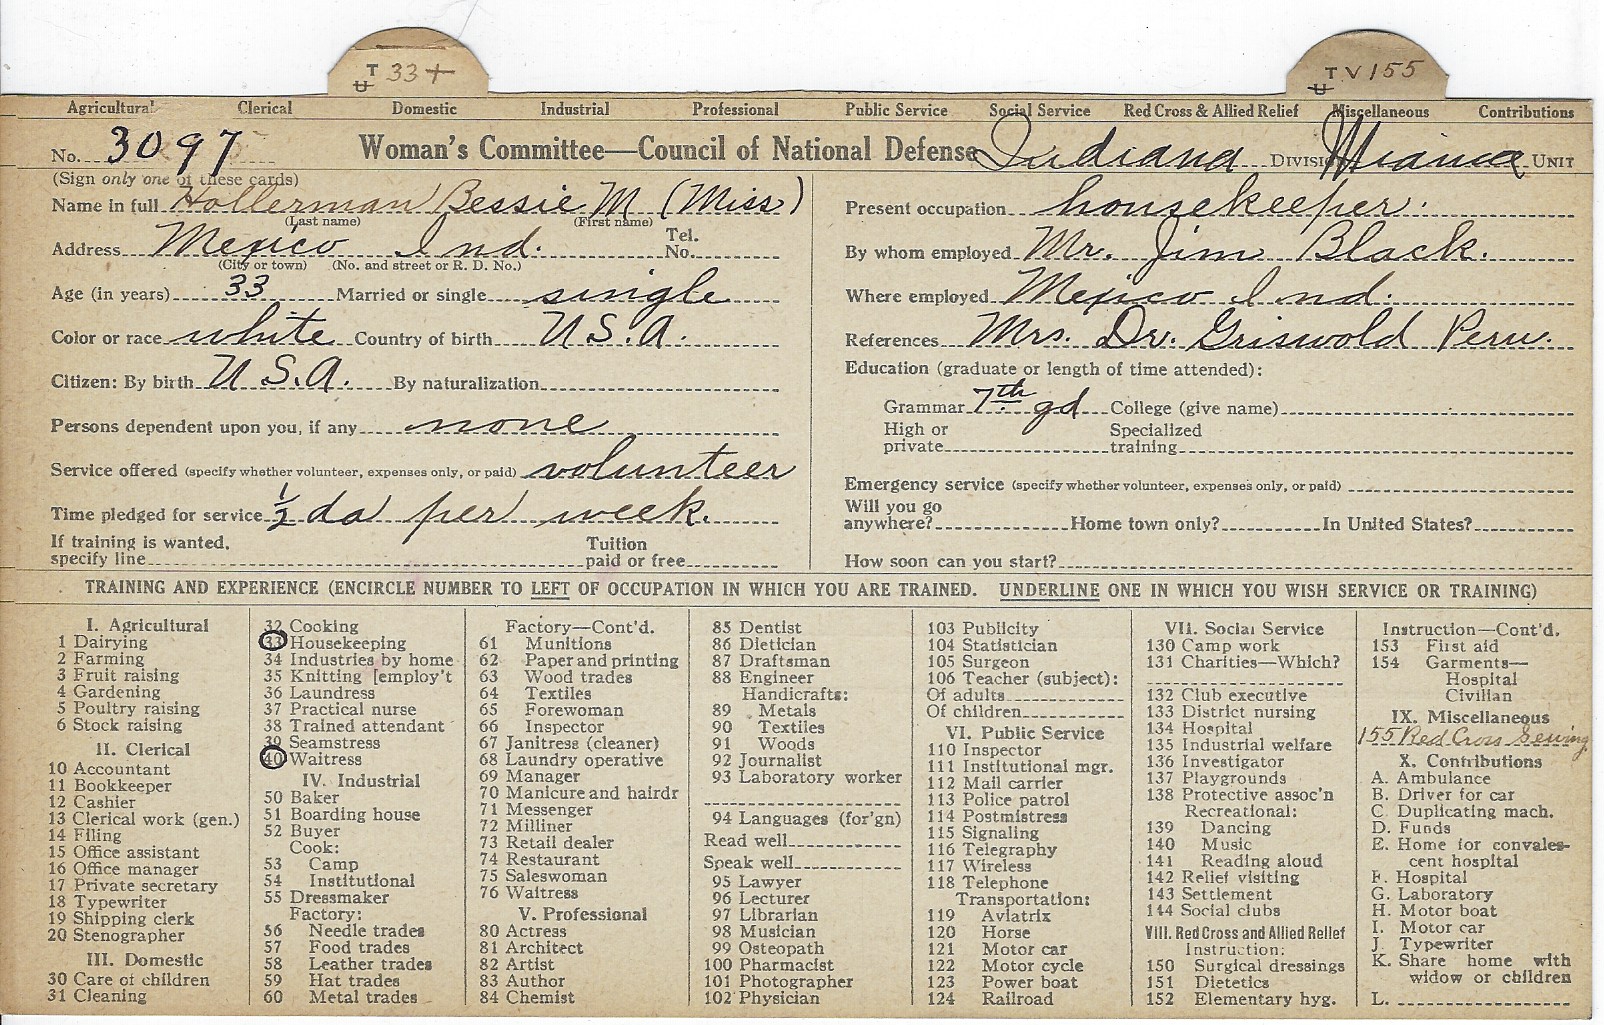 T U 33+
T U V155
Agricultural Clerical Domestic Industrial Professional Public Service Social Service Red Cross & Allied Relief Miscellaneous Contributions
No. 3097 Woman's Committee—Council of National Defense Indiana DIVISION Miami UNIT
(Sign only one of these cards)
Name in full Hollerman Bessie M (Miss)
(Last name) (First name)
Address Mexico Ind. Tel. No.
(City or town) (No. and street or R. D. No.)
Age (in years) 33 Married or single single
Color or race white Country of birth U.S.A.
Citizen: By birth U.S.A. By naturalization
Persons dependent upon you, if any none
Service offered (specify whether volunteer, expenses only, or paid) volunteer
Time pledged for service ½ da per week.
If training is wanted, specify line Tuition paid or free
Present occupation housekeeper.
By whom employed Mr. Jim Black.
Where employed Mexico Ind.
References Mrs. Dr. Griswold Peru.
Education (graduate or length of time attended):
Grammar 7th gd College (give name)
High or private Specialized training
Emergency service (specify whether volunteer, expenses only, or paid)
Will you go anywhere? Home town only? In United States?
How soon can you start?
TRAINING AND EXPERIENCE (ENCIRCLE NUMBER TO LEFT OF OCCUPATION IN WHICH YOU ARE TRAINED. UNDERLINE ONE IN WHICH YOU WISH SERVICE OR TRAINING)
I. Agricultural
1 Dairying
2 Farming
3 Fruit raising
4 Gardening
5 Poultry raising
6 Stock raising
II. Clerical
10 Accountant
11 Bookkeeper
12 Cashier
13 Clerical work (gen.)
14 Filing
15 Office assistant
16 Office manager
17 Private secretary
18 Typewriter
19 Shipping clerk
20 Stenographer
III. Domestic
30 Care of children
31 Cleaning
32 Cooking
33 Housekeeping
34 Industries by home
35 Knitting [employ't
36 Laundress
37 Practical nurse
38 Trained attendant
39 Seamstress
40 Waitress
IV. Industrial
50 Baker
51 Boarding house
52 Buyer
Cook:
53 Camp
54 Institutional
55 Dressmaker
Factory:
56 Needle trades
57 Food trades
58 Leather trades
59 Hat trades
60 Metal trades
Factory—Cont'd.
61 Munitions
62 Paper and printing
63 Wood trades
64 Textiles
65 Forewoman
66 Inspector
67 Janitress (cleaner)
68 Laundry operative
69 Manager
70 Manicure and hairdr
71 Messenger
72 Milliner
73 Retail dealer
74 Restaurant
75 Saleswoman
76 Waitress
V. Professional
80 Actress
81 Architect
82 Artist
83 Author
84 Chemist
85 Dentist
86 Dietician
87 Draftsman
88 Engineer
Handicrafts:
89 Metals
90 Textiles
91 Woods
92 Journalist
93 Laboratory worker
94 Languages (for'gn)
Read well
Speak well
95 Lawyer
96 Lecturer
97 Librarian
98 Musician
99 Osteopath
100 Pharmacist
101 Photographer
102 Physician
103 Publicity
104 Statistician
105 Surgeon
106 Teacher (subject):
Of adults
Of children
VI. Public Service
110 Inspector
111 Institutional mgr.
112 Mail carrier
113 Police patrol
114 Postmistress
115 Signaling
116 Telegraphy
117 Wireless
118 Telephone
Transportation:
119 Aviatrix
120 Horse
121 Motor car
122 Motor cycle
123 Power boat
124 Railroad
VII. Social Service
130 Camp work
131 Charities—Which?
132 Club executive
133 District nursing
134 Hospital
135 Industrial welfare
136 Investigator
137 Playgrounds
138 Protective assoc'n
Recreational:
139 Dancing
140 Music
141 Reading aloud
142 Relief visiting
143 Settlement
144 Social clubs
VIII. Red Cross and Allied Relief
Instruction:
150 Surgical dressings
151 Dietetics
152 Elementary hyg.
Instruction—Cont'd.
153 First aid
154 Garments—
Hospital
Civilian
IX. Miscellaneous
155 Red Cross Sewing
X. Contributions
A. Ambulance
B. Driver for car
C. Duplicating mach.
D. Funds
E. Home for convales-
cent hospital
F. Hospital
G. Laboratory
H. Motor boat
I. Motor car
J. Typewriter
K. Share home with
widow or children
L.